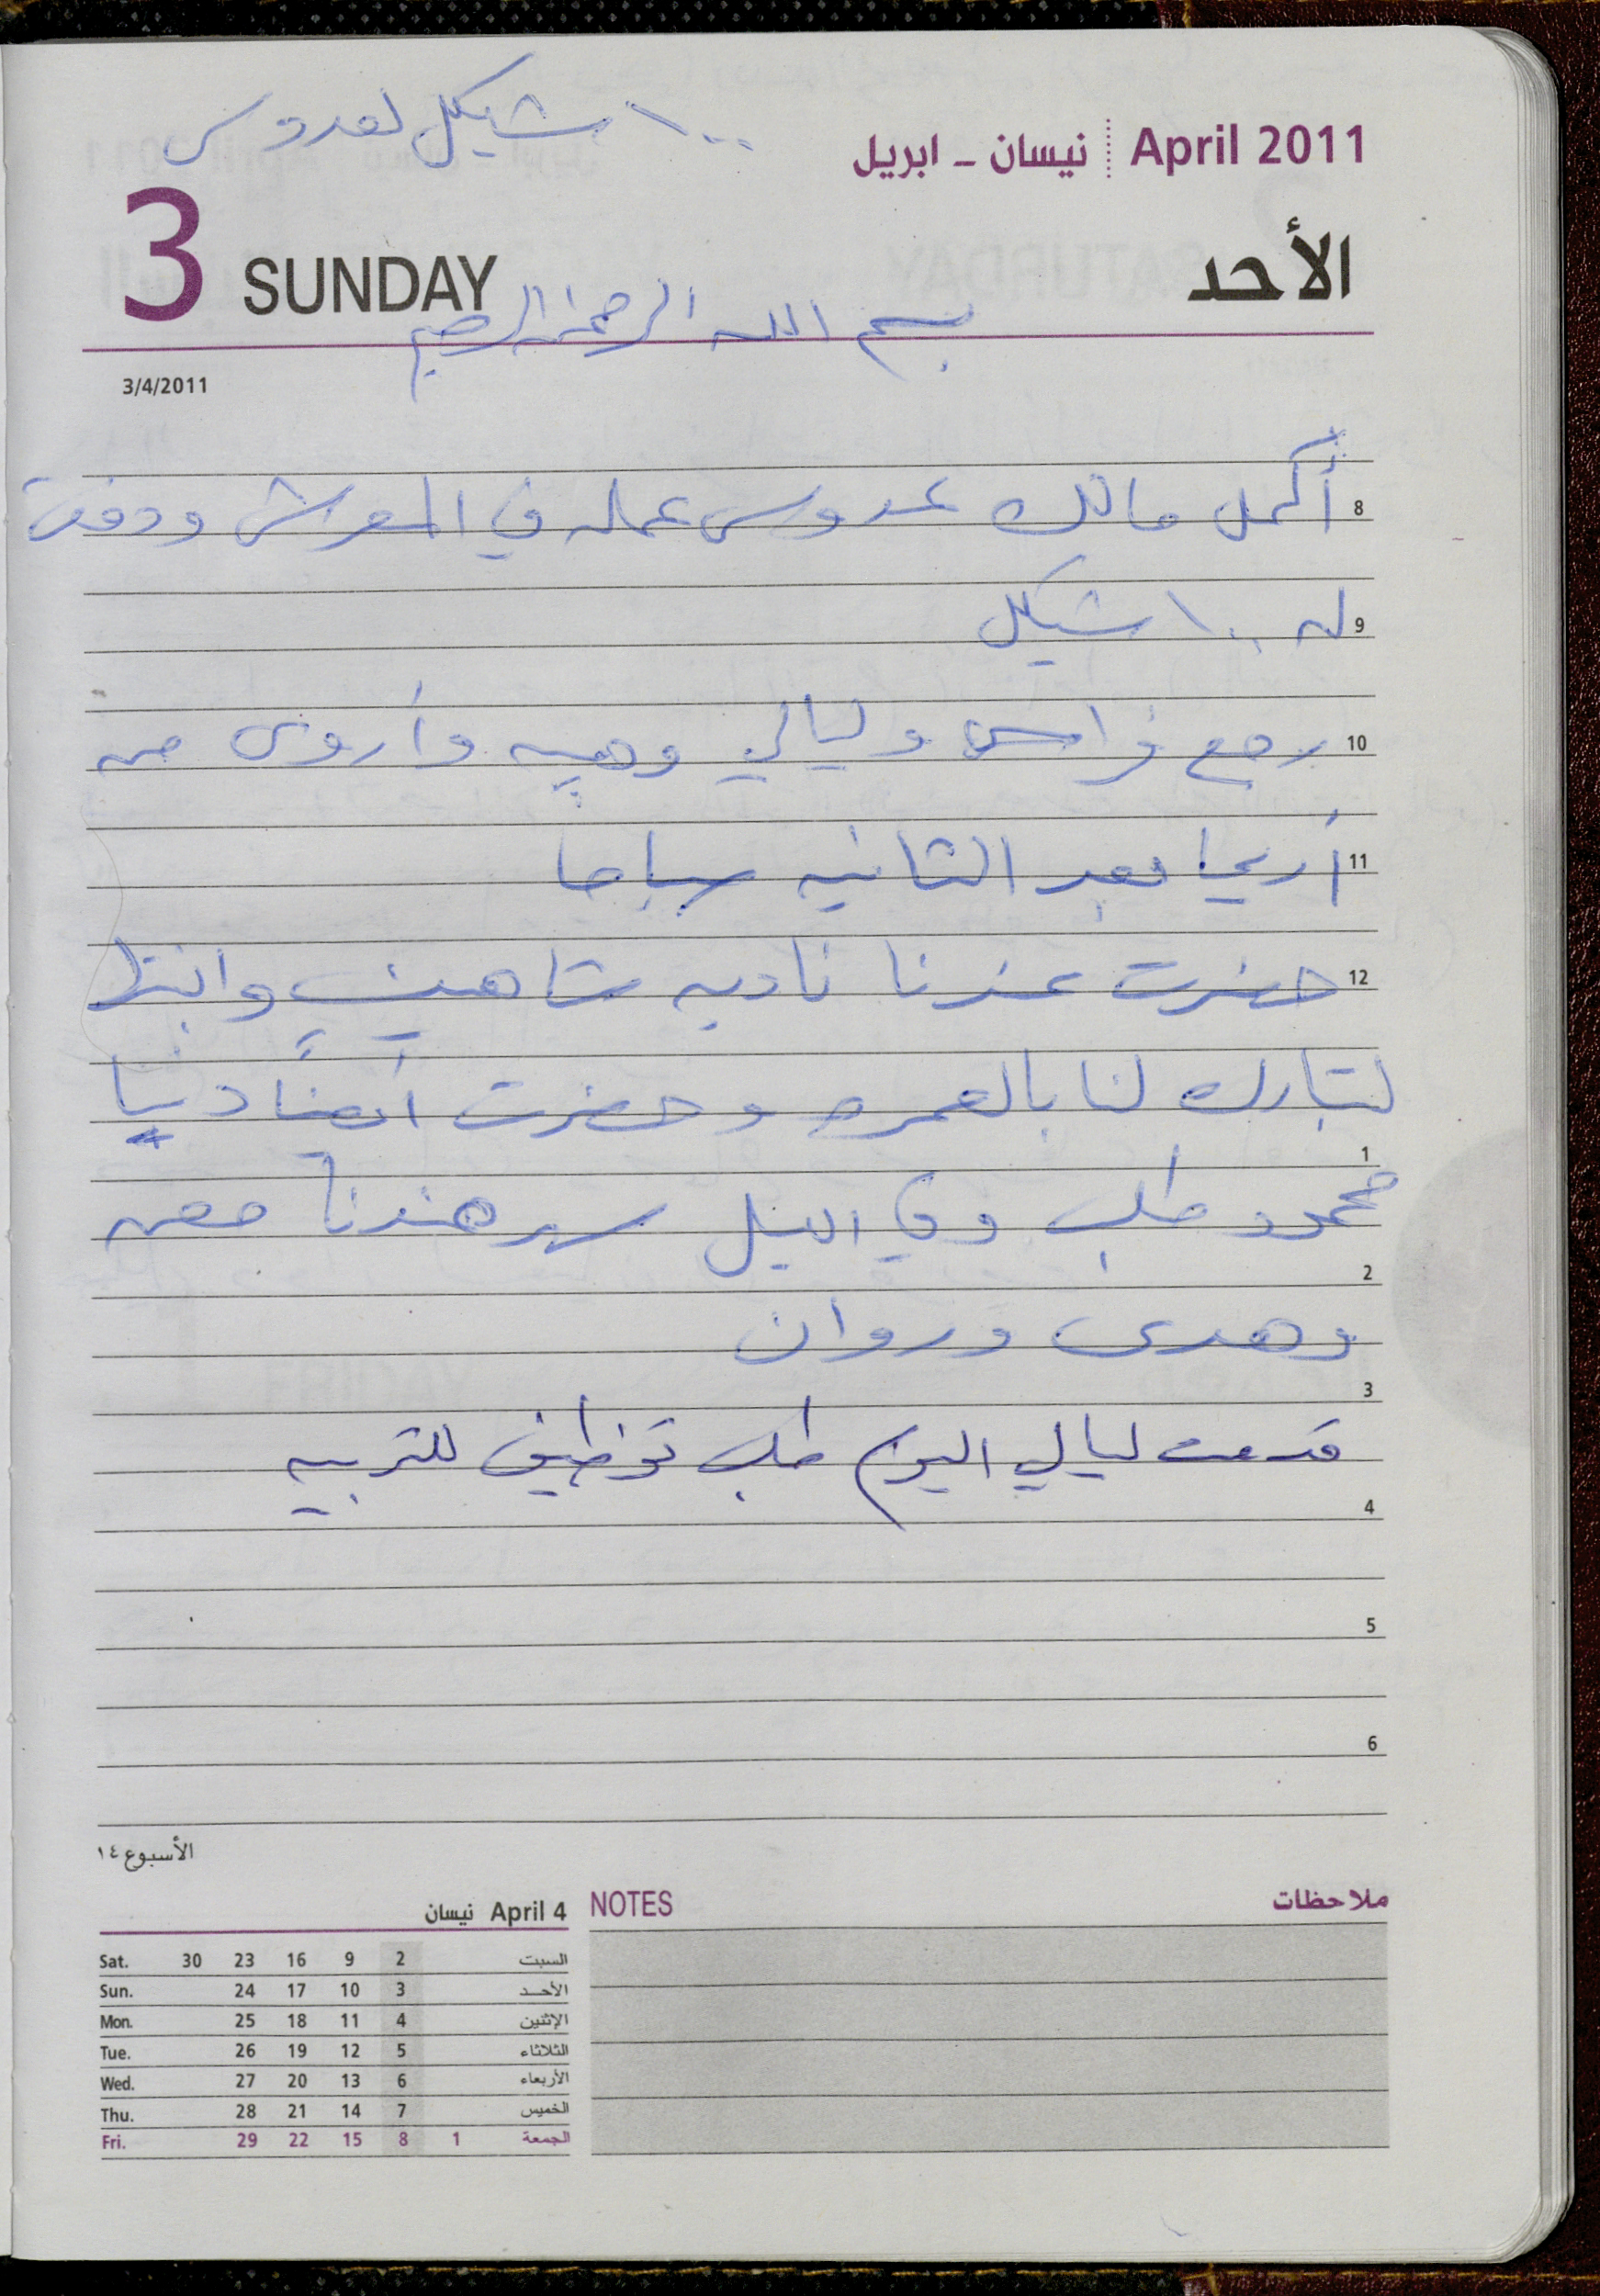 ١٠٠ شيكل لعدوس
April 2011 نيسان - ابريل
3 SUNDAY الأحد
بسم الله الرحمن الرحيم
3/4/2011
8 أكمل مالك عدوس عمله في المعرش ودفعت
9 له ١٠٠ شيكل
10 رجع فراس وليالي وهبه وأروى من
11 أريحا بعد الثانيه صباحا
12 حضرت عندنا ناديه شاهين وابنتها
لتبارك لنا بالعمره وحضرت أيضاً دنيا
1
محمود طلب وفي اليل سهر هندنا معن
2
وهدى وروان
3
قدمت ليالي اليوم طلب توظيف للتربيه
4
5
6
الأسبوع ١٤
NOTES ملاحظات
April 4 نيسان
Sat. 30 23 16 9 2 السبت
Sun. 24 17 10 3 الأحد
Mon. 25 18 11 4 الإثنين
Tue. 26 19 12 5 الثلاثاء
Wed. 27 20 13 6 الأربعاء
Thu. 28 21 14 7 الخميس
Fri. 29 22 15 8 1 الجمعة